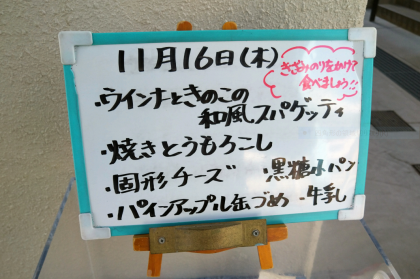 11月16日(木)
きざみのりをかけて
食べましょう!!
・ウインナときのこの
和風スパゲッティ
・焼きとうもろこし
・固形チーズ
・黒糖小パン
・パインアップル缶づめ
・牛乳